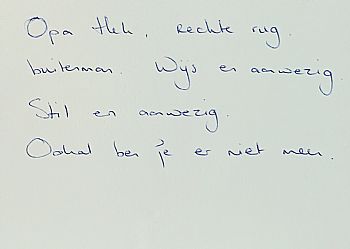 Opa Hek, rechte rug.
buitenman. Wijs en aanwezig.
Stil en aanwezig.
Ookal ben je er niet meer.